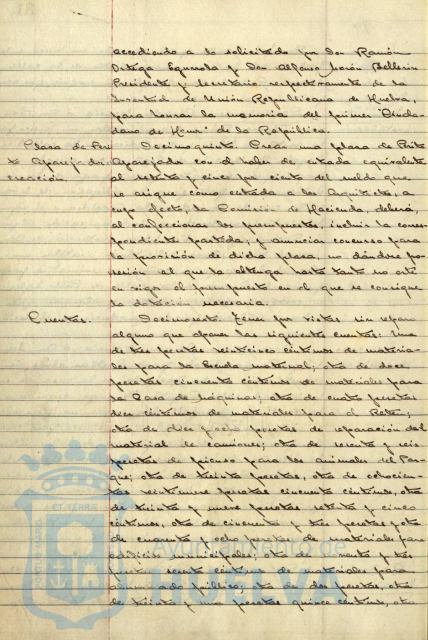 accediendo a lo solicitado por Don Ramón
Ortega Esquerola y Don Alfonso Morón Bellerin
Presidente y Secretario respectivamente de la
Juventud de Unión Republicana de Huelva,
para honrar la memoria del primer "Ciuda-
dano de Honor" de la República.
Plaza de Peri-
to Aparejador:
creación.
Decimoquinto. Crear una plaza de Perito
Aparejador con el haber de entrada equivalente
al setenta y cinco por ciento del sueldo que
se asigne como entrada a los Arquitectos, a
cuyo efecto, la Comisión de Hacienda, deberá,
al confeccionar los presupuestos, incluir la corres-
pondiente partida; y anunciar concurso para
la provisión de dicha plaza, no dándose po-
sesión al que la obtenga hasta tanto no esté
en vigor el presupuesto en el que se consigne
la dotación necesaria.
Cuentas.
Decimosexto. Tener por vistas sin reparo
alguno que oponer las siguientes cuentas: Una
de tres pesetas veinticinco céntimos de materia-
les para la Escuela maternal; otra de doce
pesetas cincuenta céntimos de materiales para
la Casa de Máquinas; otra de cuatro pesetas
diez céntimos de materiales para el
otra de diez y ocho pesetas de reparación del
material de camiones; otra de sesenta y seis
pesetas de pienso para los animales del Par-
que; otra de treinta pesetas, otra de ochocien-
tas veintinueve pesetas cincuenta céntimos, otra
de treinta y nueve pesetas setenta y cinco
céntimos, otra de cincuenta y tres pesetas y otra
de cuarenta y ocho pesetas de materiales para
edificios municipales; otra de y tres
pesetas sesenta céntimos de materiales para
alumbrado público; otra de dos pesetas, otra
de treinta y una pesetas quince céntimos, otra
AYUNTAMIENTO DE
HUELVA